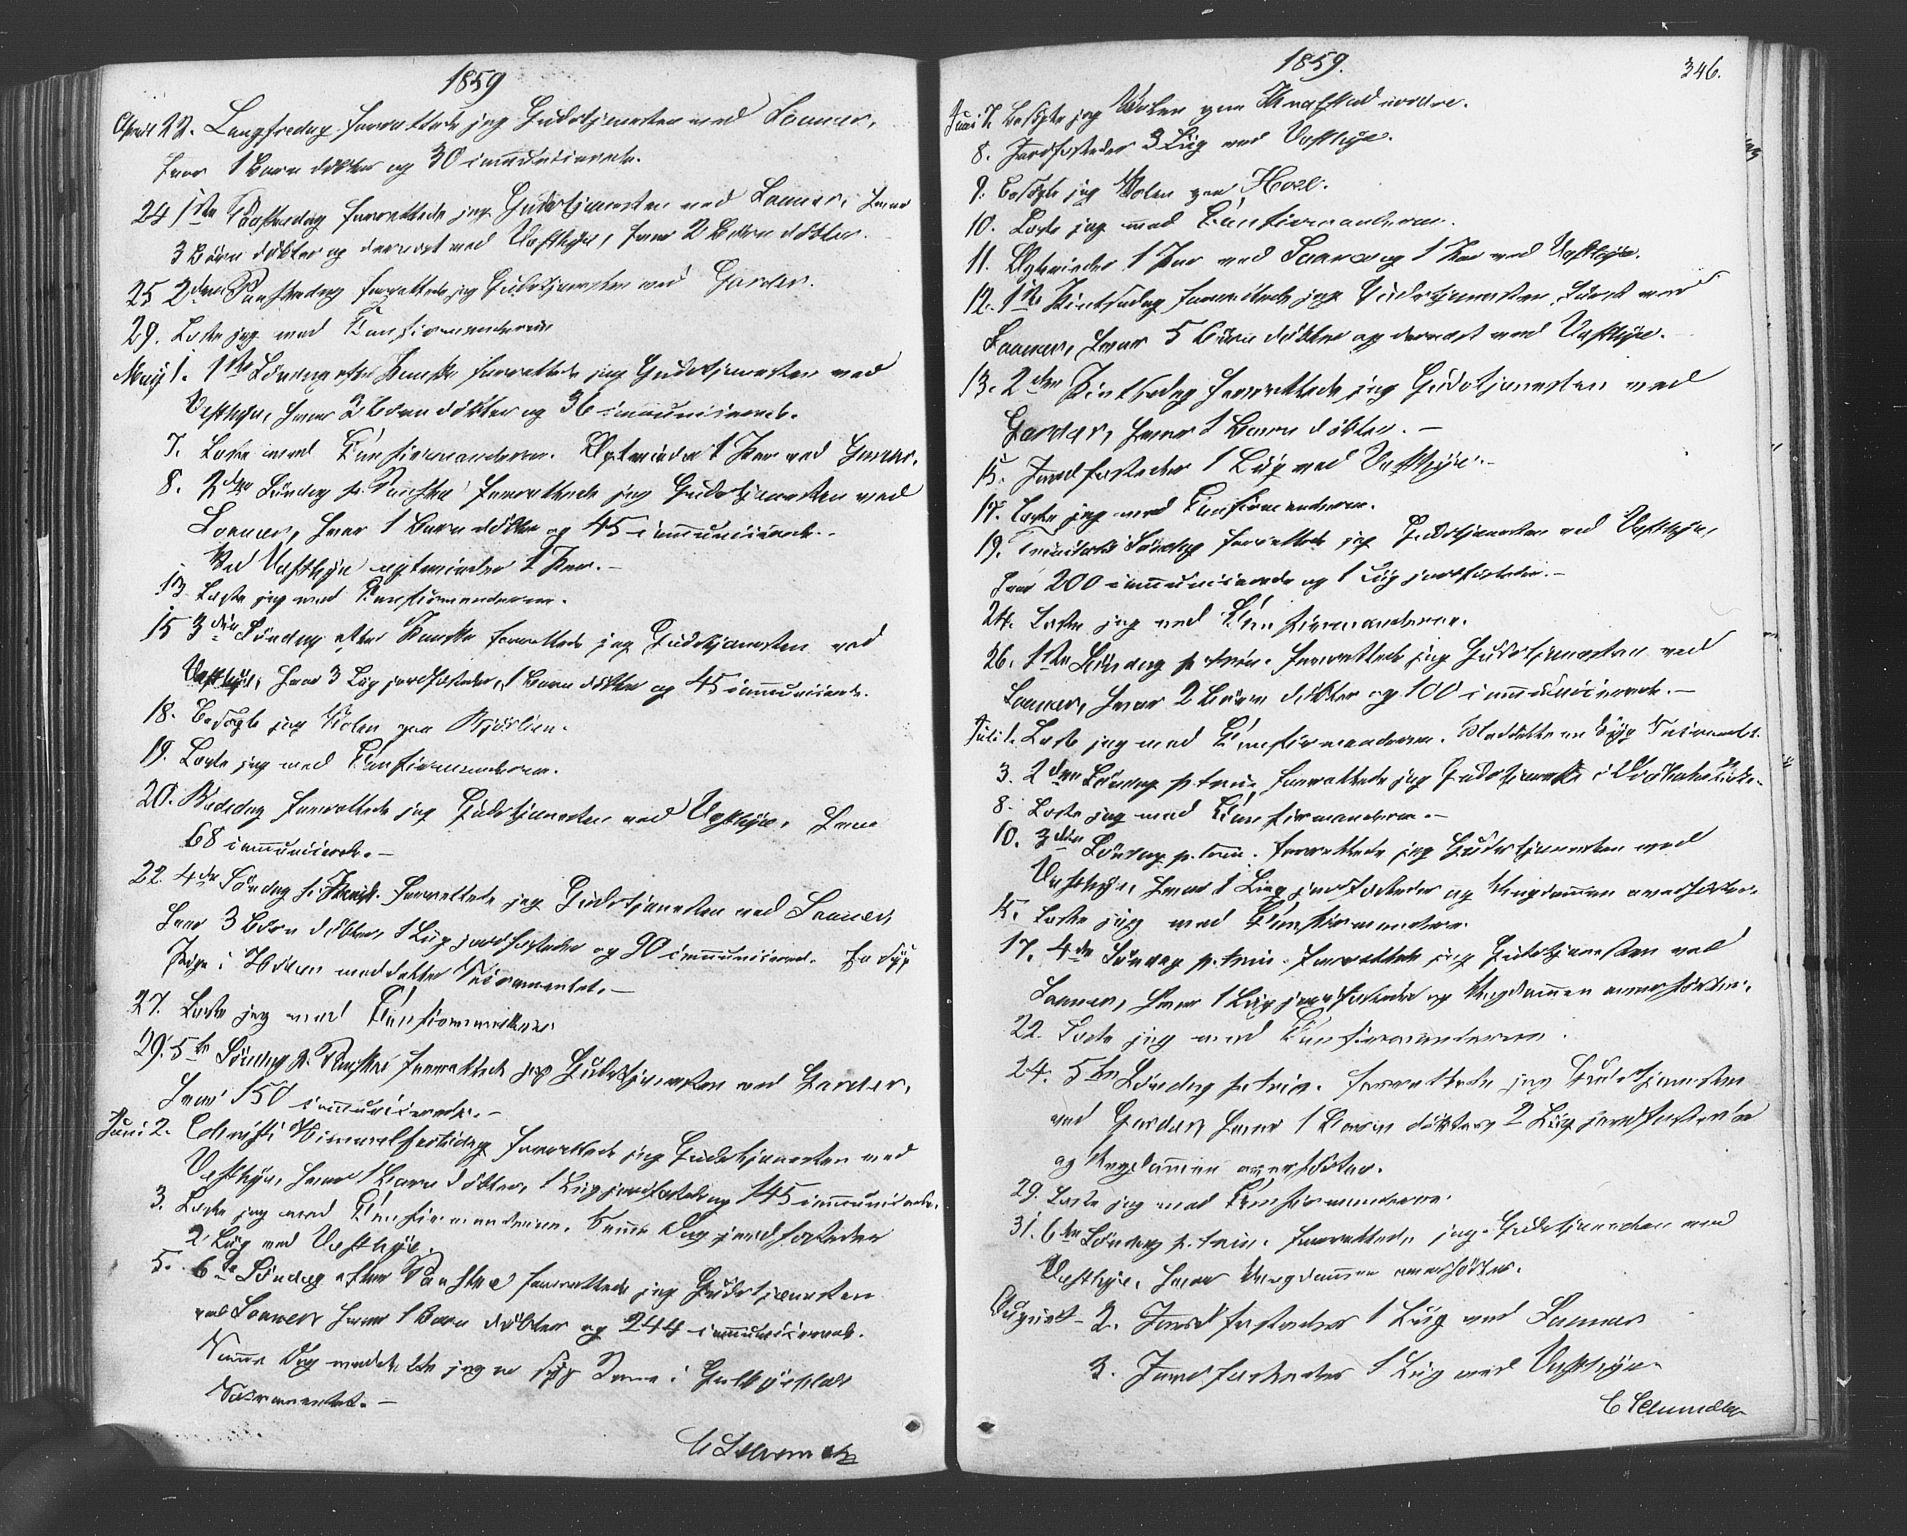 1859
April 22. Langfredag forrettede jeg Gudstjenesten ved Sonner,
hvor 1 Barn döbtes og 30 communicerede.
24 1ste Paaskedag forrettede jeg Gudstjenesten ved Sonner, hvor
3 Börn döbtes og dernæst ved Vestbye, hvor 2 Börn döbtes.
25 2den Paaskedag forrettede jeg Gudstjenesten ved Garder.
29. Læste jeg med Confirmanderne
May 1. 1ste Söndag efter Paaske forrettede jeg Gudstjenesten ved
Vestbye, hvor 2 Börn döbtes og 36 communicerede.
7. Læste med Confirmanderne. Egteviede 1 Par ved
8. 2den Söndag p. Paaske forrettede jeg Gudstjenesten ved
Sonner, hvor 1 Barn döbtes og 45 communicerede.
Ved Vestbye egteviedes 1 Par.-
13 Læste jeg med Confirmanderne.
15 3die Söndag efter Paaske forrettede jeg Gudstjenesten ved
Vestbye, hvor 3 Liig jordfæstedes, 1 Barn döbtes og 45 communicerede.
18. Besögte jeg Skolen paa
19. Læste jeg med Confirmanderne.
20. Bededag forrettede jeg Gudstjenesten ved Vestbye, hvor
68 communicerede.-
22. 4de Söndag p. Paaske forrettede jeg Gudstjenesten ved Sonner,
hvor 3 Börn döbtes, 1 Liig jordfæstedes og 90 communicerede. En syg
Pige i meddeltes Sacramentet.-
27. Læste jeg med Confirmanderne
29. 5te Söndag p. Paaske forrettede jeg Gudstjenesten ved Garder,
hvor 150 communicerede.-
Juni 2. Christi Himmelfartsdag forrettede jeg Gudstjenesten ved
Vestbye, hvor 1 Barn döbtes, 1 Liig jordfæstedes og 145 communicerede.
3. Læste jeg med Confirmanderne. Samme Dag jordfæstedes
2 Liig ved Vestbye.
5. 6te Söndag efter Paaske forrettede jeg Gudstjenesten
ved Sonner, hvor 1 Barn döbtes og 244 communicerede.
Samme Dag meddeelte jeg en syg i
Sacramentet.-
C Schwencke
1859. 346.
Juni 7. Besögte jeg Skolen paa Krogstad nordre.
8. Jordfæstedes 3 Liig ved Vestbye.
9. Besögte jeg Skolen paa Hoel.
10. Læste jeg med Confirmanderne.
11. Egteviedes 1 Par ved Sonner og 1 Par ved Vestbye.
12. 1ste Pintsedag forrettede jeg Gudstjenesten, först ved
Sonner, hvor 5 Börn döbtes og dernæst ved Vestbye.
13. 2den Pintsedag forrettede jeg Gudstjenesten ved
Garder, hvor 1 Barn döbtes.-
15. Jordfæstedes 1 Liig ved Vestbye.-
17. Læste jeg med Confirmanderne.
19. Trinitatis Söndag forrettede jeg Gudstjenesten ved Vestbye,
hvor 200 communicerede og 1 Liig jordfæstedes.-
24. Læste jeg med Confirmanderne.
26. 1ste Söndag p. trin. forrettede jeg Gudstjenesten ved
Sonner, hvor 2 Börn döbtes og 100 communicerede.-
Juli 1. Læste jeg med Confirmanderne. Meddeelte en Syg Sacramentet.
3. 2den Söndag p. trin. forrettede jeg Gudstjeneste i
8. Læste jeg med Confirmanderne.-
10. 3die Söndag p. trin. forrettede jeg Gudstjenesten ved
Vestbye, hvor 1 Liig jordfæstedes og Ungdommen overhörtes.
15. Læste jeg med Confirmanderne.
17. 4de Söndag p. trin. forrettede jeg Gudstjenesten ved
Sonner, hvor 1 Liig jordfæstedes og Ungdommen overhörtes.
22. Læste jeg med Confirmanderne.
24. 5te Söndag p. trin. forrettede jeg Gudstjenesten
ved Garder, hvor 1 Barn döbtes, 2 Liig jordfæstedes
og Ungdommen overhörtes.
29. Læste jeg med Confirmanderne.
31. 6te Söndag p. trin. forrettede jeg Gudstjenesten ved
Vestbye, hvor Ungdommen overhörtes.
August 2. Jordfæstedes 1 Liig ved Sonner
3. Jordfæstedes 1 Liig ved Vestbye.
C Schwencke